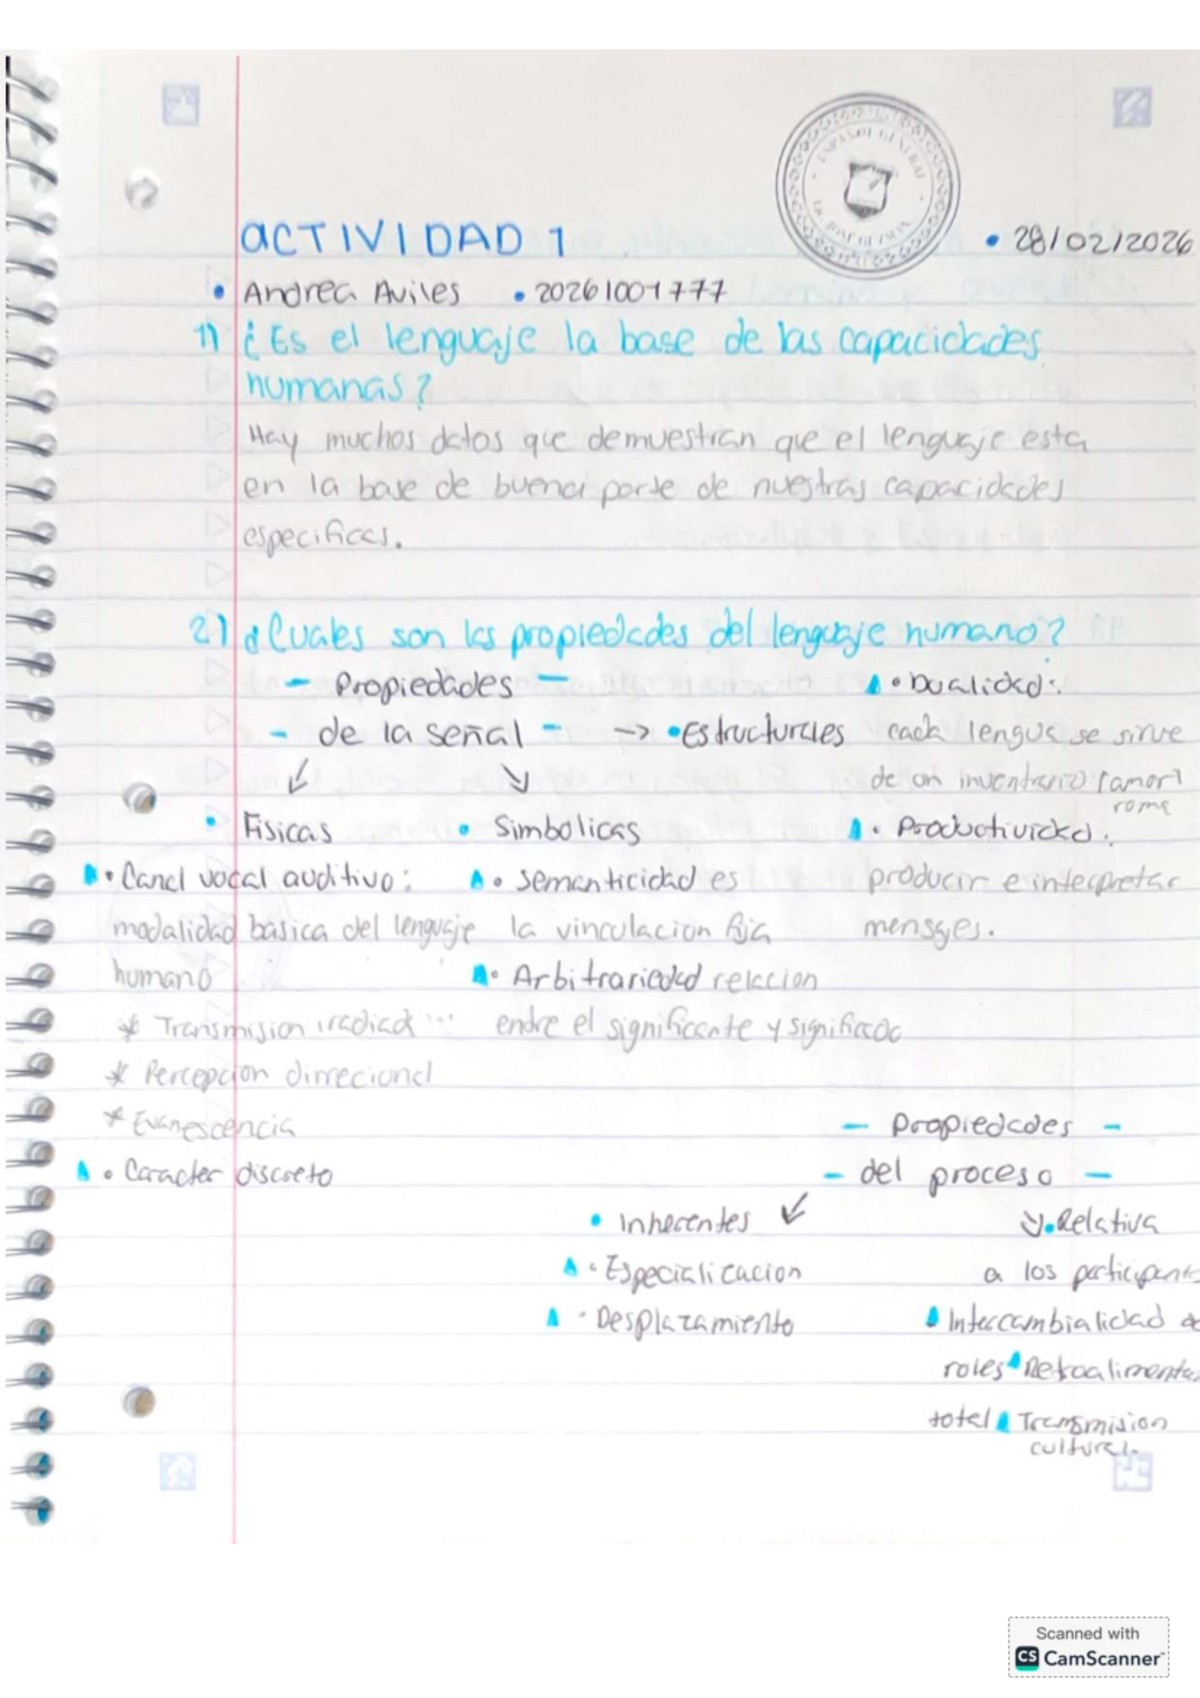 ESPAÑOL GENERAL
ACTIVIDAD 1
• 28/02/2026
• Andrea Aviles • 20261001777
1) ¿Es el lenguaje la base de las capacidades
humanas?
Hay muchos datos que demuestran que el lenguaje esta
en la base de buena parte de nuestras capacidades
especificas.
2) ¿Cuales son las propiedades del lenguaje humano?
- Propiedades -
- de la señal - → • Estructurales
↙ ↘
• Fisicas
• Canal vocal auditivo:
modalidad basica del lenguaje
humano
* Transmision iradiada ...
* Percepcion dirrecional
* Evanescencia
• Caracter discreto
• Simbolicas
• Semanticidad es
la vinculacion fija
• Arbitrariedad relacion
entre el significante y significado
• Dualidad:
cada lengua se sirve
de un inventario (amor)
roma
• Productividad:
producir e interpretar
mensajes.
- Propiedades -
- del proceso -
• Inherentes ↙
• Especialicacion
• Desplazamiento
↘ • Relativa
a los participant
Intercambialidad de
roles Retroalimenta
total Transmision
cultural.
Scanned with
CS CamScanner